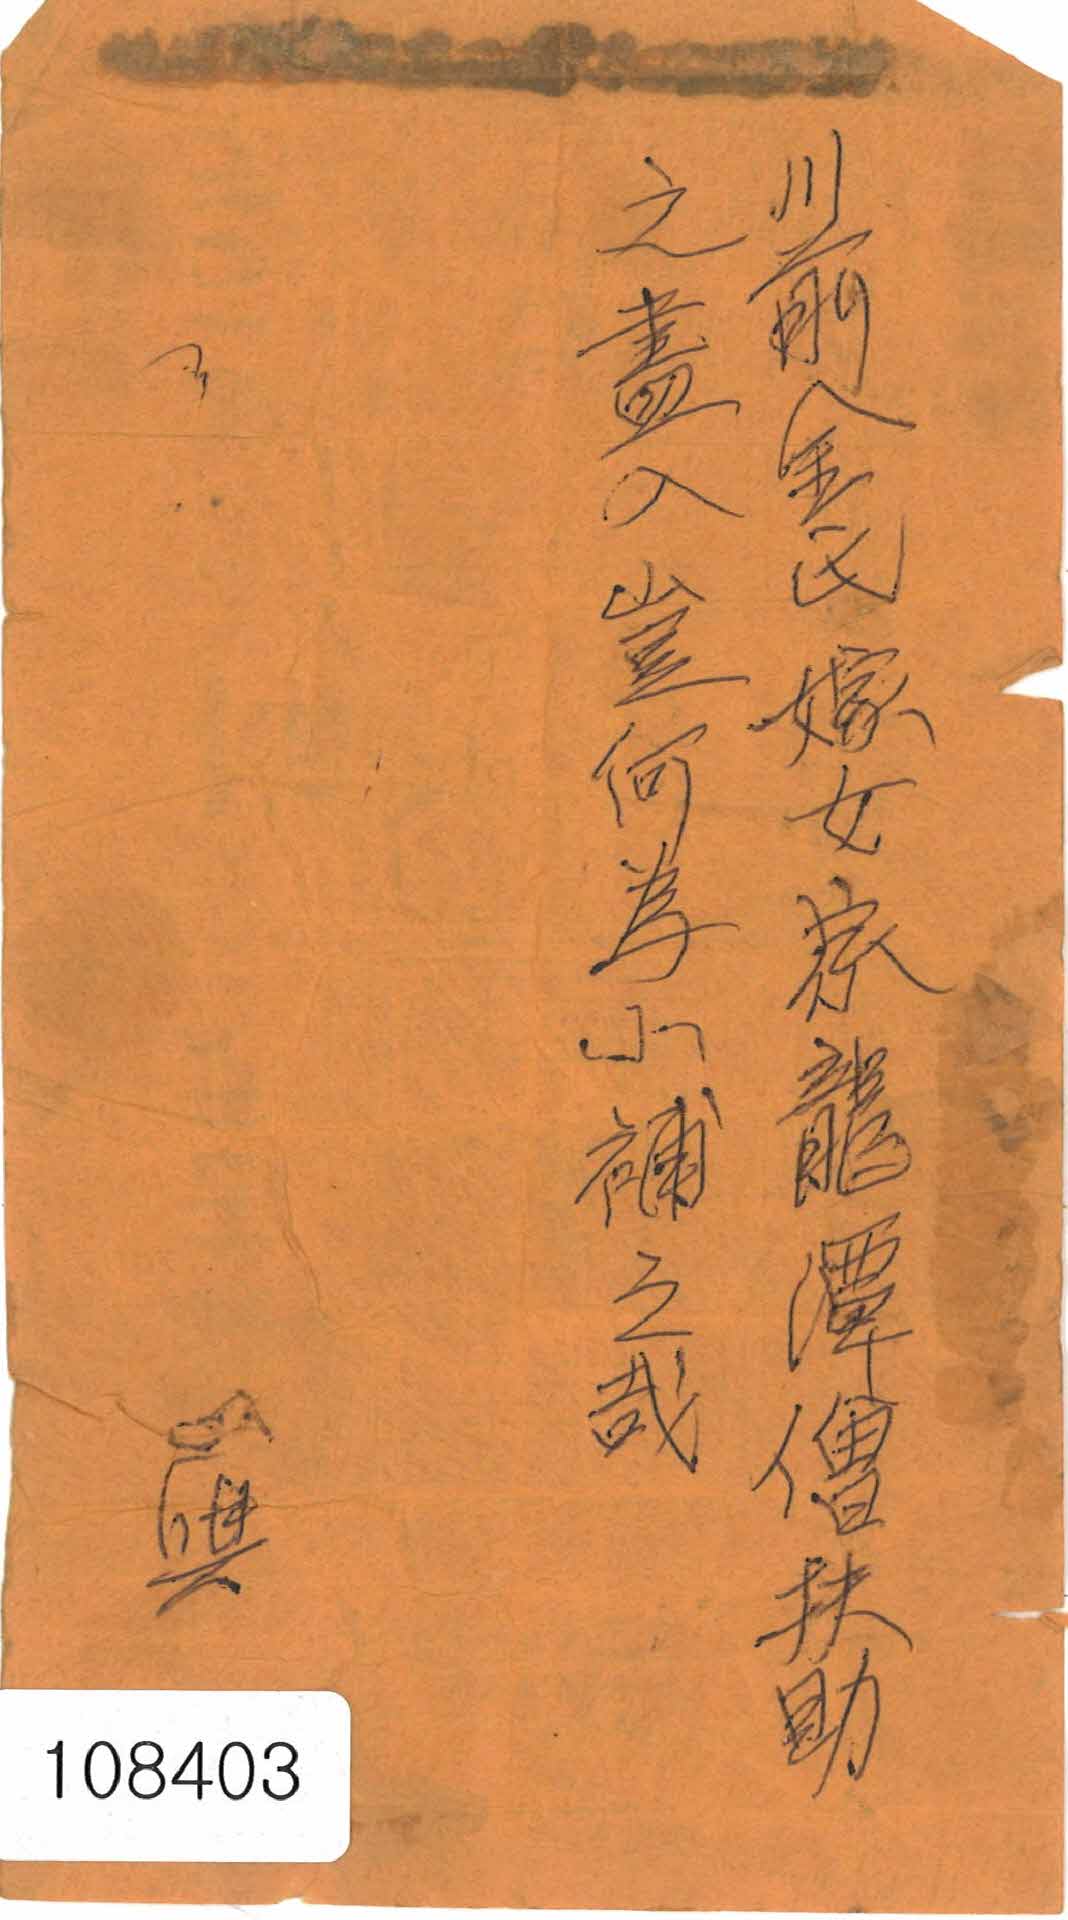 川前金氏嫁女家龍潭僧扶助
之盡入豈何為小補之哉
興
108403